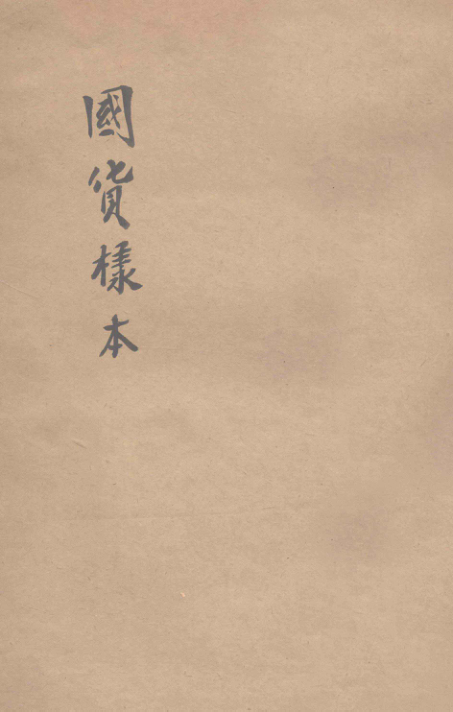 國貨樣本